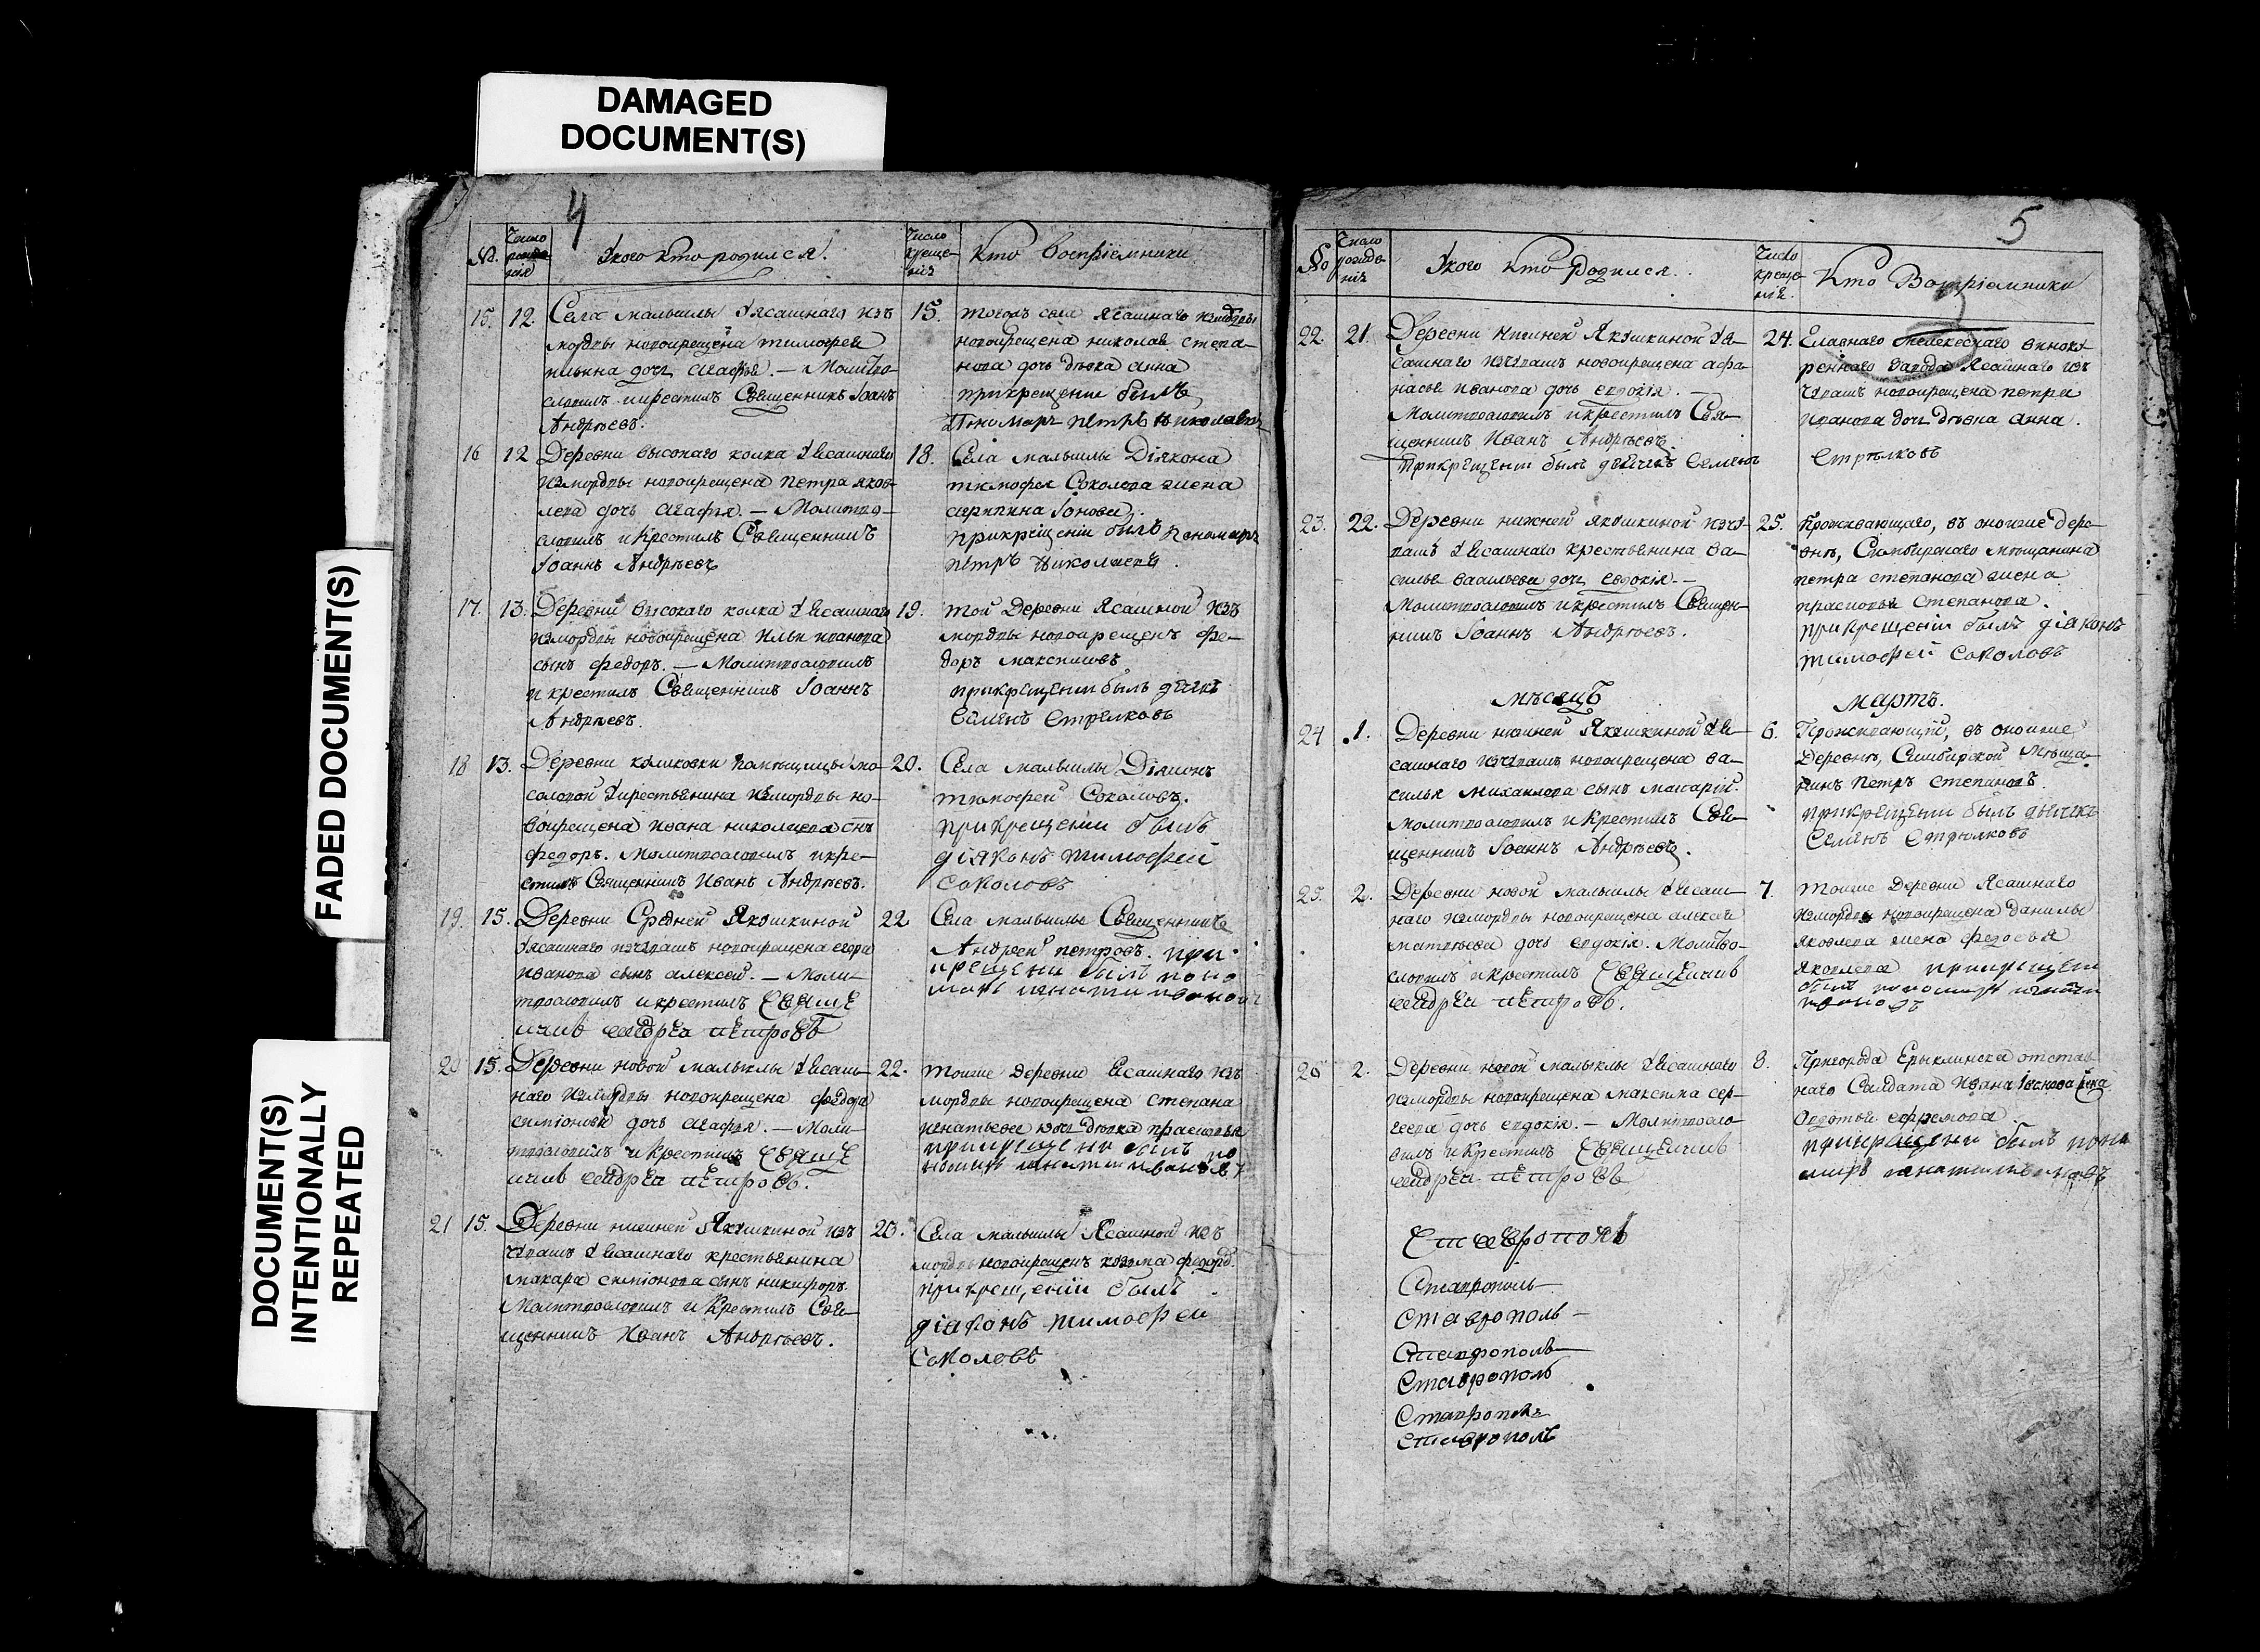 DAMAGED
DOCUMENT(S)
FADED DOCUMENT(S)
DOCUMENT(S)
INTENTIONALLY
REPEATED
4
№.
Число
рожде-
нія
У кого кто родился.
Число
креще-
нія
Кто Воспріемники
15. 12.
Села малыклы У ясашнаго изъ
мордвы новокрещена тимофея
ильина дочь Агафья. — Молитво-
словилъ и крестилъ Священникъ Іоаннъ
Андреевъ.
15.
тогожъ села ясашнаго измордвы
новокрещена николая степа-
нова дочь девка анна
прикрещении былъ
Пономарь петръ Николаевъ
16 12
Деревни высокаго колка У ясашнаго
измордвы новокрещена петра яков-
лева дочь Агафья. — Молитво-
словилъ и Крестилъ Священникъ
Іоаннъ Андреевъ
18.
Села малыклы Діякона
тимофея Соколова жена
Іонова.
прикрещении былъ пономарь
петръ Николаевъ.
17. 13.
Деревни высокаго колка У ясашнаго
измордвы новокрещена Ильи иванова
сынъ федоръ. — Молитвословилъ
и крестилъ Священникъ Іоаннъ
Андреевъ.
19.
той Деревни Ясашной изъ
мордвы новокрещенъ фе-
доръ максимовъ
прикрещении былъ дьячекъ
Семенъ Стрелковъ
18 13.
Деревни помещицы мо-
соловой У крестьянина измордвы но-
вокрещена Ивана николаева снъ
федоръ. Молитвословилъ и кре-
стилъ Священникъ Иванъ Андреевъ.
20.
Села малыклы Діяконъ
тимофей Соколовъ.
прикрещении былъ
діяконъ тимофей
соколовъ
19. 15.
Деревни Средней Якушкиной
У ясашнаго изчувашъ новокрещена егора
Иванова сынъ алексей. — Моли-
твословилъ и крестилъ Свяще
нникъ Андрей петровъ
22
Села малыклы Священникъ
Андрей петровъ. при
крещении былъ поно
марь игнатий ивановъ
20 15.
Деревни новой малыклы У ясаш-
наго измордвы новокрещена федора
симіонова дочь Агафья. — Моли-
твословилъ и Крестилъ Свяще
нникъ Андрей петровъ.
22.
тоиже деревни Ясашнаго изъ
мордвы новокрещена степана
игнатьева дочь девка прасковья
прикрещении былъ по
номарь игнатий ивановъ
21 15.
Деревни нижней Якушкиной изъ
чувашъ У ясашнаго крестьянина
макара симіонова сынъ никифоръ.
Молитвословилъ и Крестилъ Свя-
щенникъ Иванъ Андреевъ.
20.
Села малыклы Ясашной изъ
мордвы новокрещенъ козма федоров.
прикрещении былъ
діяконъ тимофей
соколовъ
5
№
Число
рожде-
нія
У кого кто Родился.
Число
креще-
нія.
Кто Воспріемники
22. 21.
Деревни нижней Якушкиной У я-
сашнаго изчувашъ новокрещена афа-
насья Иванова дочь евдокія. —
Молитвословилъ и крестилъ Свя-
щенникъ Иванъ Андреевъ.
прикрещении былъ дьячекъ Семенъ
24.
Главнаго Мелекескаго виноку
реннаго завода Ясашнаго изъ
чувашъ новокрещена петра
иванова дочь девка анна.
Стрелковъ
23. 22.
Деревни нижней якушкиной изчу-
вашъ У ясашнаго крестьянина ва-
силья васильева дочь евдокія. —
Молитвословилъ и крестилъ Священ-
никъ Іоаннъ Андреевъ.
25.
Проживающаго, въ оноиже дере-
вне, Симбирскаго мещанина
петра степанова жена
прасковья степанова.
прикрещении былъ діяконъ
тимофей соколовъ
месяцъ
мартъ.
24 1.
Деревни нижней Якушкиной У я-
сашнаго изчувашъ новокрещена ва-
силья михайлова сынъ макарій.
молитвословилъ и Крестилъ Свя-
щенникъ Іоаннъ Андреевъ.
6.
Проживающий, въ оноиже
Деревне, Симбирской меща-
нинъ петръ степановъ.
прикрещении былъ дьячекъ
Семенъ Стрелковъ
25. 2.
Деревни новой малыклы У ясаш-
наго измордвы новокрещена алексея
матвеева дочь евдокія. Молитво-
словилъ и крестилъ Священникъ
Андрей петровъ.
7.
тоиже Деревни Ясашнаго
измордвы новокрещена данилы
яковлева жена федосья
яковлева. прикрещени
былъ пономарь игнатий
ивановъ
26 2.
Деревни новой малыклы У ясашнаго
измордвы новокрещена максима сер-
геева дочь евдокія. — Молитвосло-
вилъ и Крестилъ Священникъ
Андрей петровъ
8.
Пригорода Ерыклинска отстав
наго Салдата Ивана жена
ефремова.
прикрещении былъ поно
марь игнатий ивановъ
Ставрополь
Ставрополь
Ставрополь —
Ставрополь
Ставрополь
Ставрополь
Ставрополь